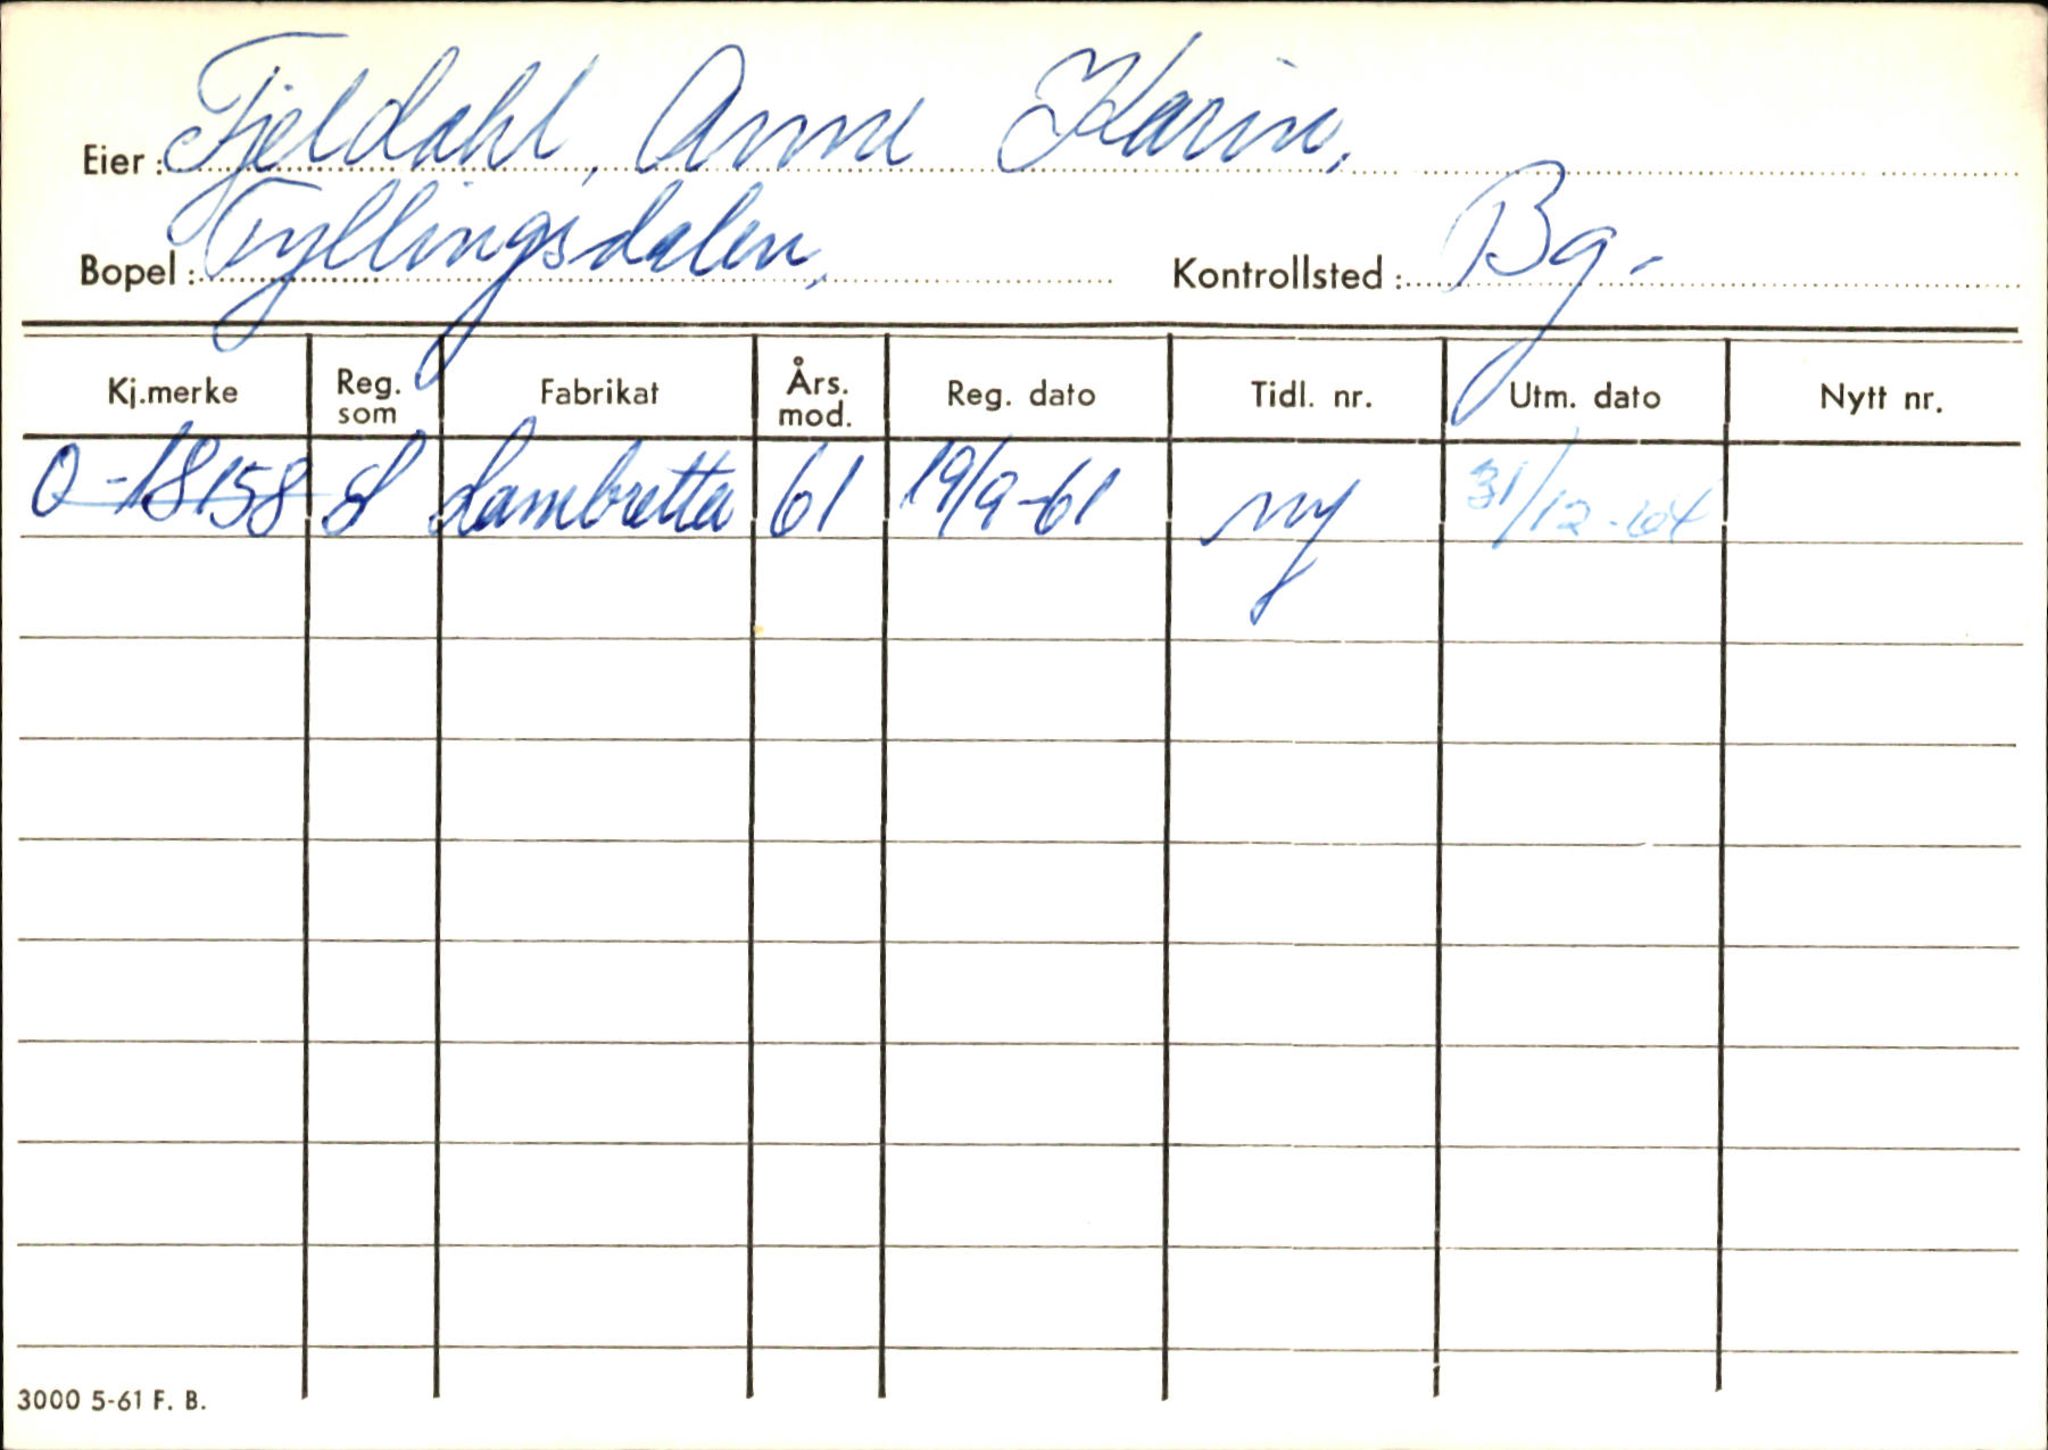 Eier: Fjeldahl, Anne Karin,
Bopel: Fyllingsdalen, Kontrollsted: Bg.
Kj.merke Reg. som Fabrikat Års. mod. Reg. dato Tidl. nr. Utm. dato Nytt nr.
O-18158 S Lambretta 61 19/9-61 ny 31/12-64
3000 5-61 F. B.